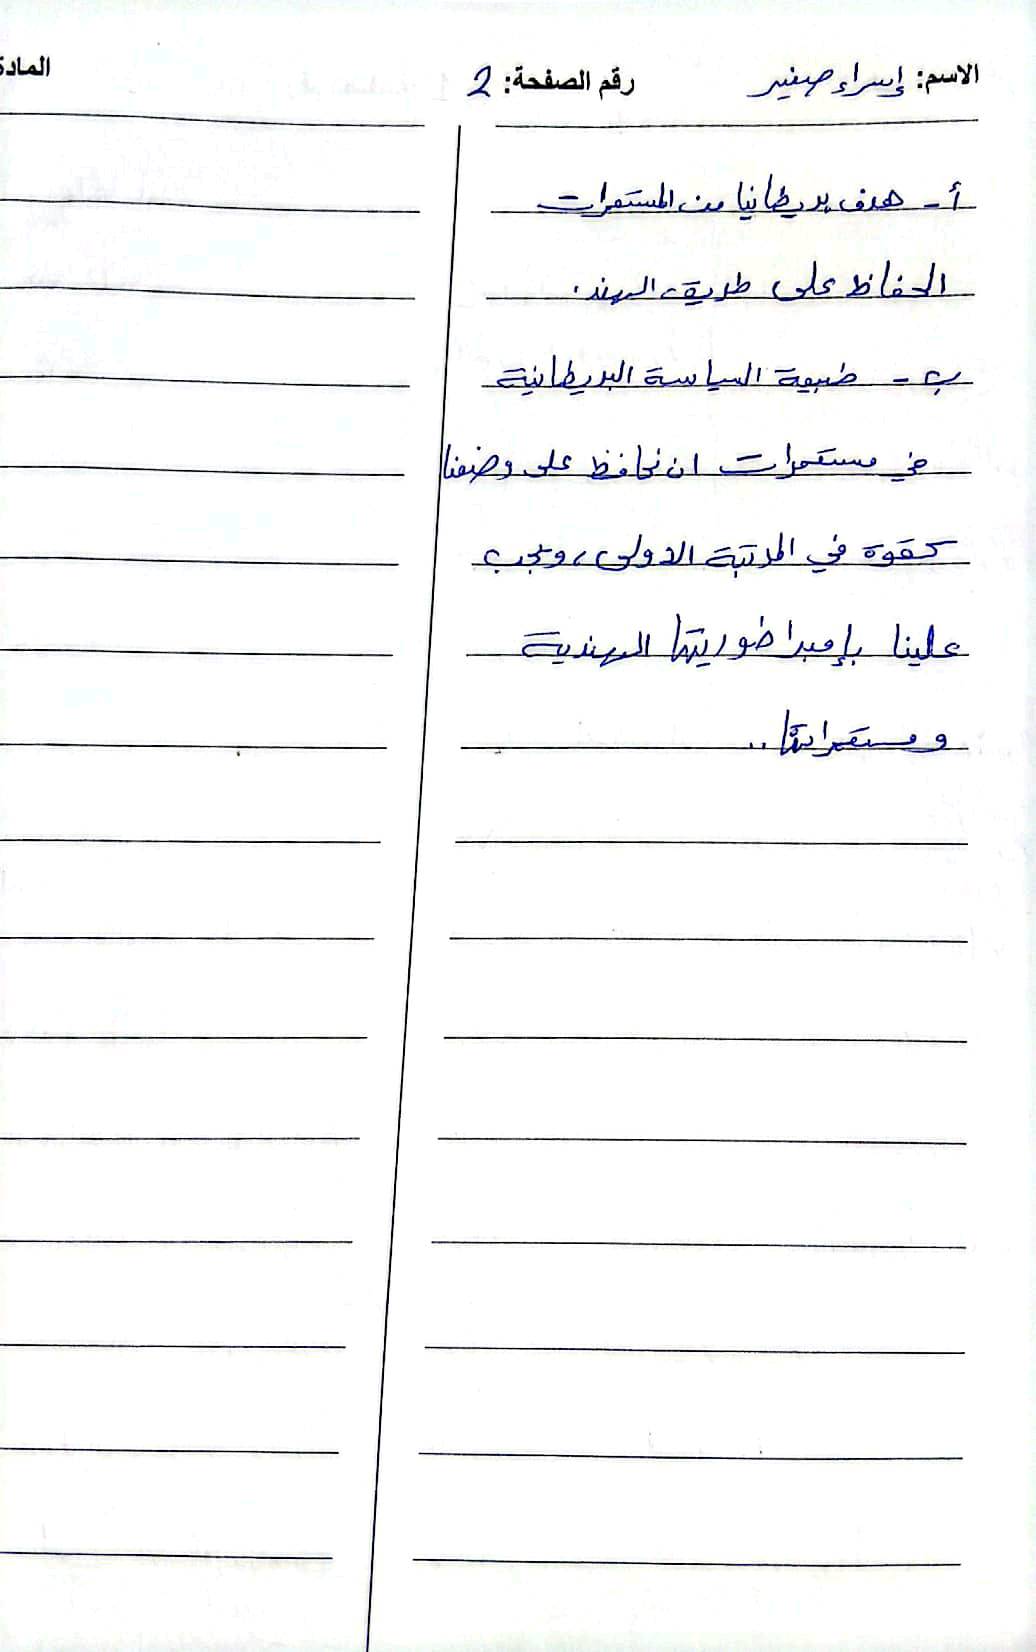 الاسم: إسراء صغير رقم الصفحة: 2 المادة
أ - هدف بريطانيا من المستعمرات
الحفاظ على طريق الهند.
ب - طبيعة السياسة البريطانية
في مستعمرات ان نحافظ على وضعنا
كقوة في المرتبة الاولى، ويجب
علينا بإمبراطوريتها الهندية
ومستعمراتها..